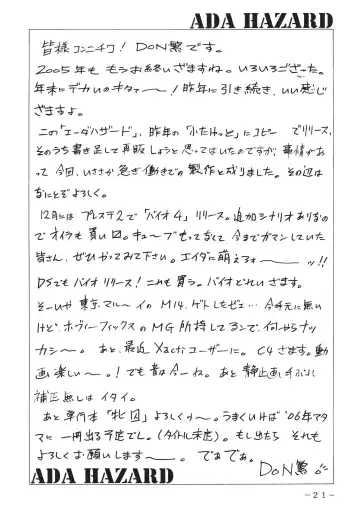 ADA HAZARD
皆様コンニチワ! DON繁です。
2005年も もうお終いざますね。いろいろござった。
年末にデカいのキター〜!昨年に引き続き、いい感じ
ざますよ。
この「エーダハザード」、昨年の「ふたけっと」にコピーでリリース、
そのうち書き足して再販しようと思ってましたのですが、事情があ
って今回、いささか急ぎ働きでの製作と成りました。その辺は
なにとぞよろしく。
12月には プレステ2で「バイオ4」リリース。追加シナリオありなの
でオイラも買い 図。キューブもってなくて今までガマンしていた
皆さん、ぜひやってみて下さい。エイダに萌えろォ〜ッ!!
DSでもバイオリリース!これも買う。バイオどれいざます。
そーいや東京マルーイのM14、ゲトしたゼェ…今手元に無い
けど、ホーヴィーフィックスのMG所持してるンで、何やらナツ
カシ〜。あと、最近Xactiユーザーに。C4ざます。動
画楽しい〜。!でも音は今一ね。あと静止画、手ぶれ
補正無しはイタイ。
あと単行本「牝囚」よろしくゥ〜。うまくいけば'06年アタ
マに一冊出る予定でし。(タイトル未定)。もし出たら それも
よろしくお願いします〜。でぁでぁ。
DON繁
ADA HAZARD
－21－